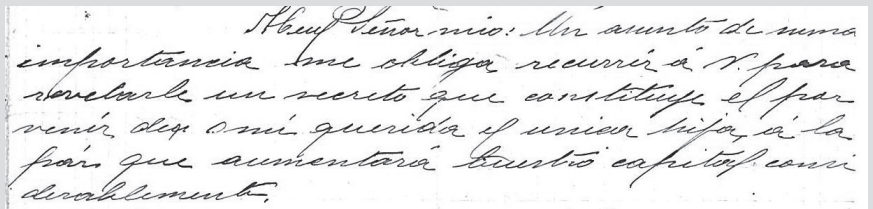 Muy Señor mio: Un asunto de suma
importancia me obliga recurrir á V. para
revelarle un secreto que constituye el por
venir de mi querida y unica hija, á la
pár que aumentará buestro capital consi
derablemente.